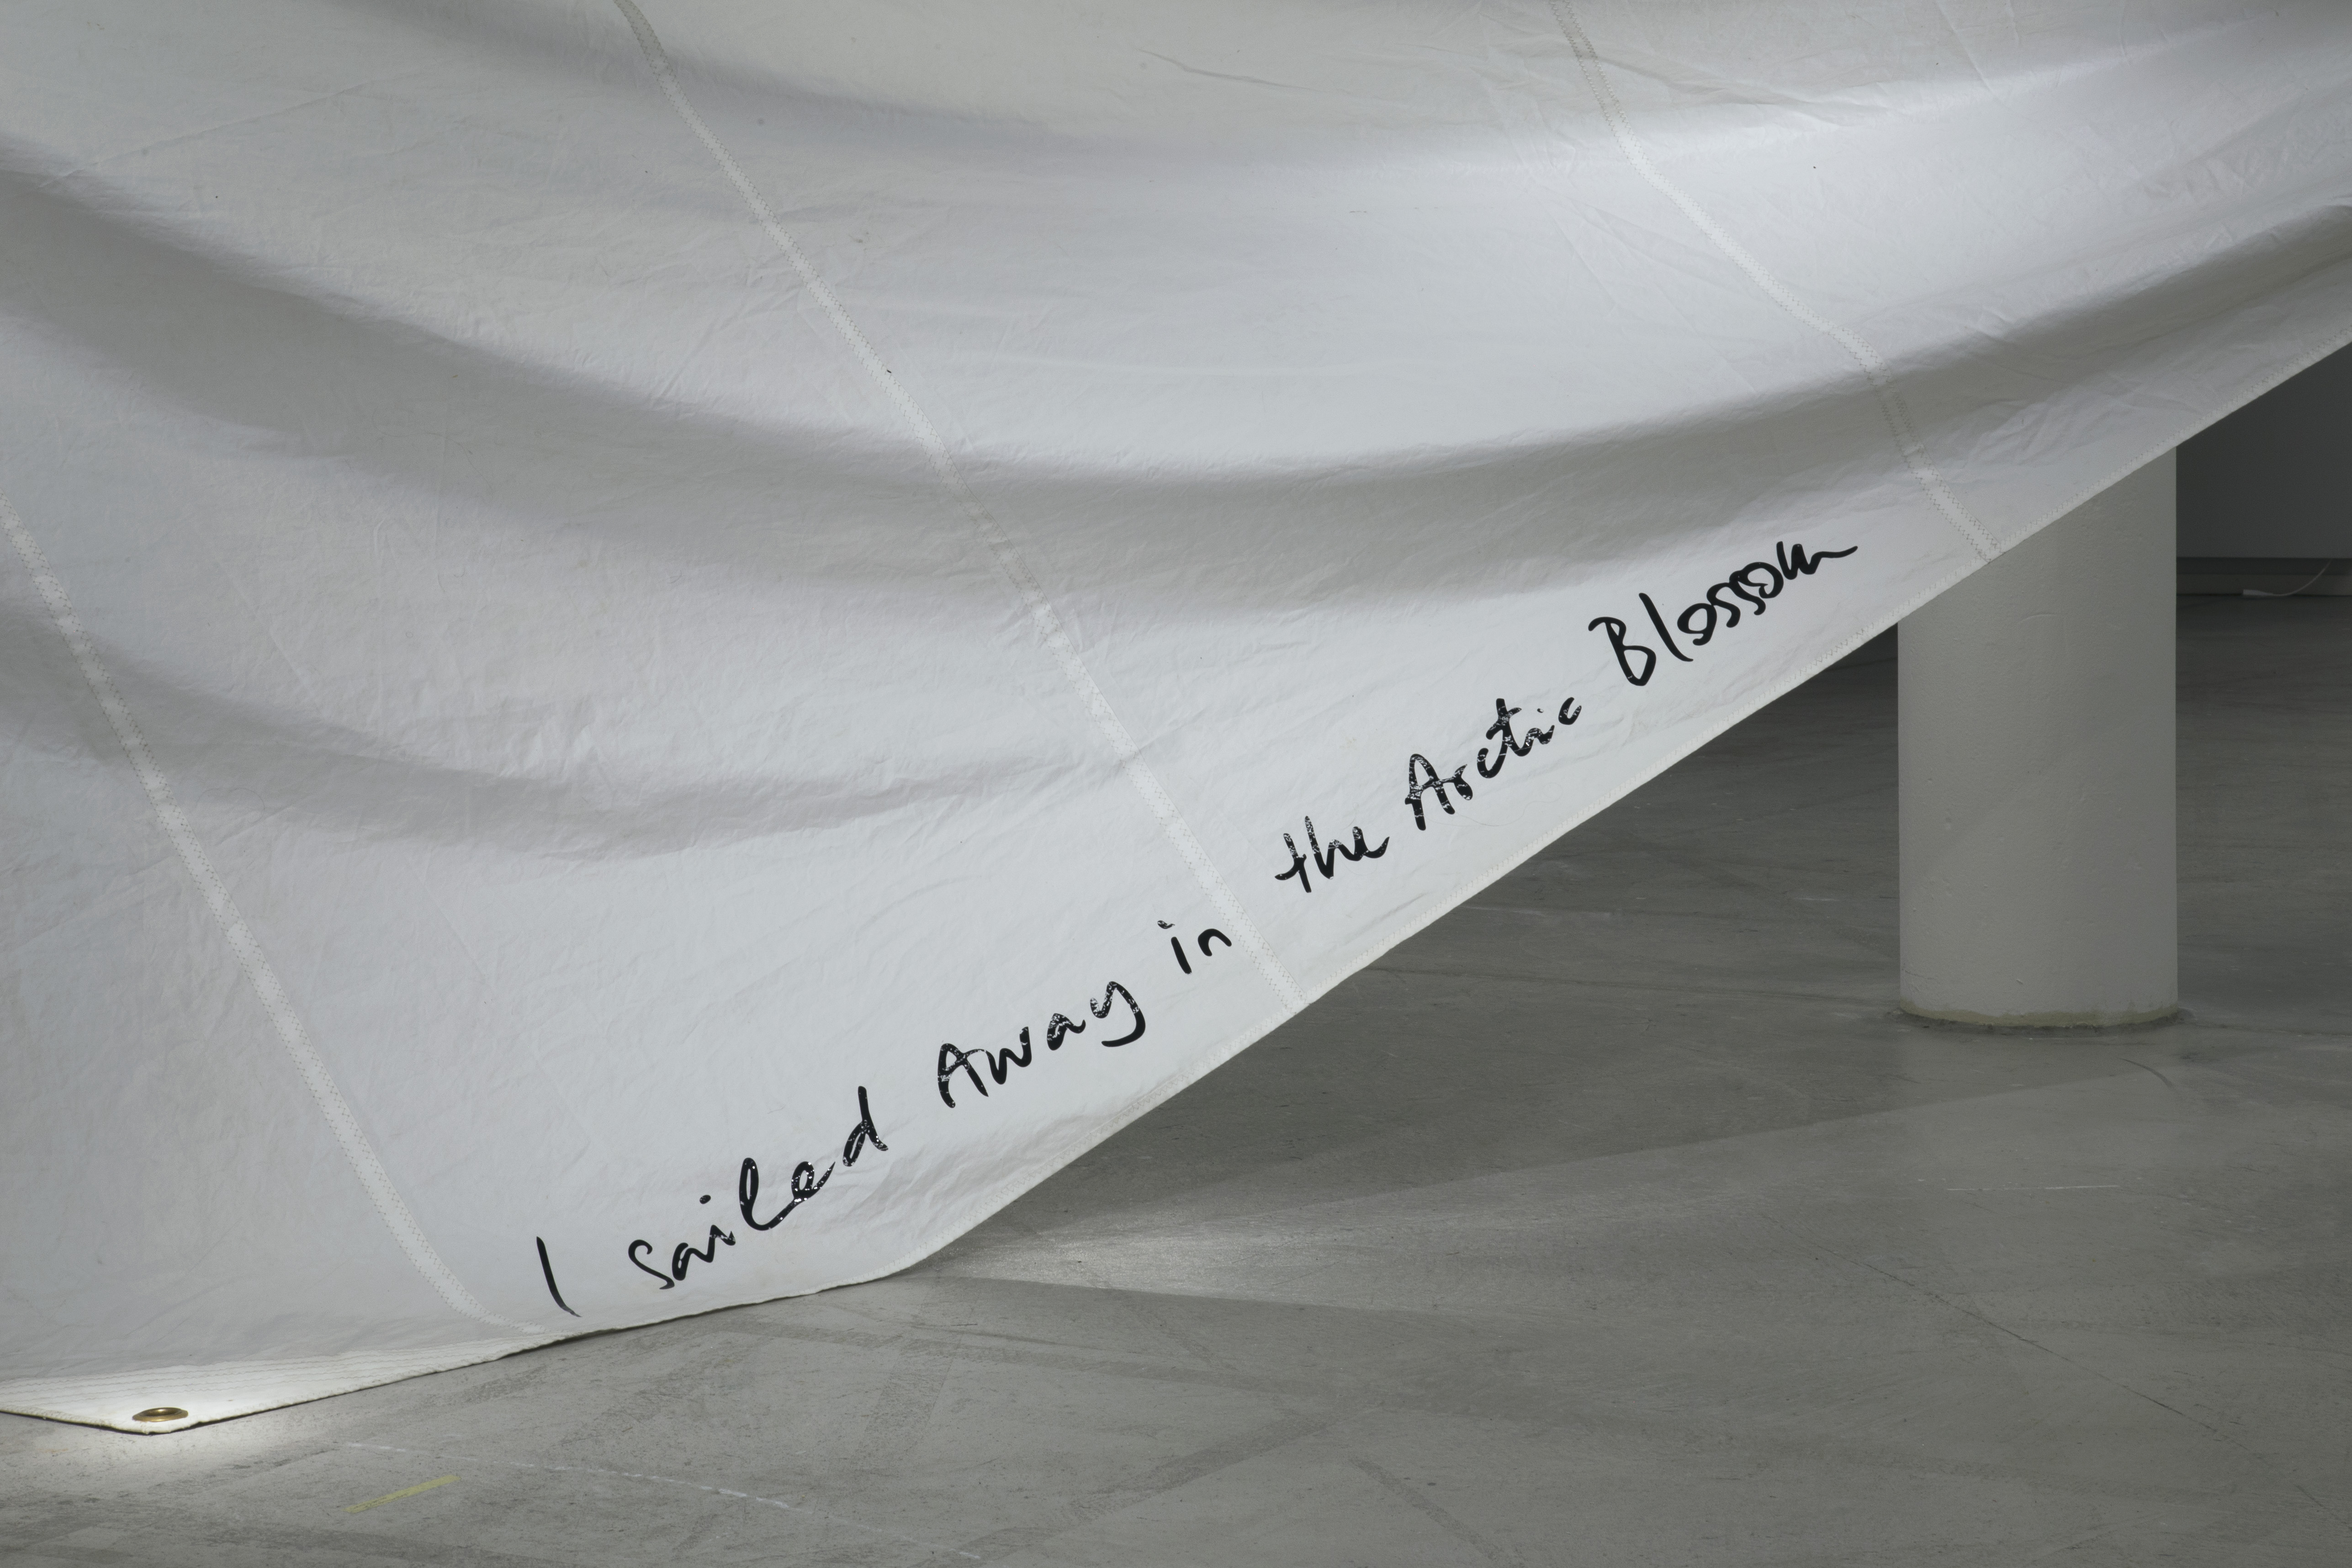 I sailed Away in the Arctic Blossom